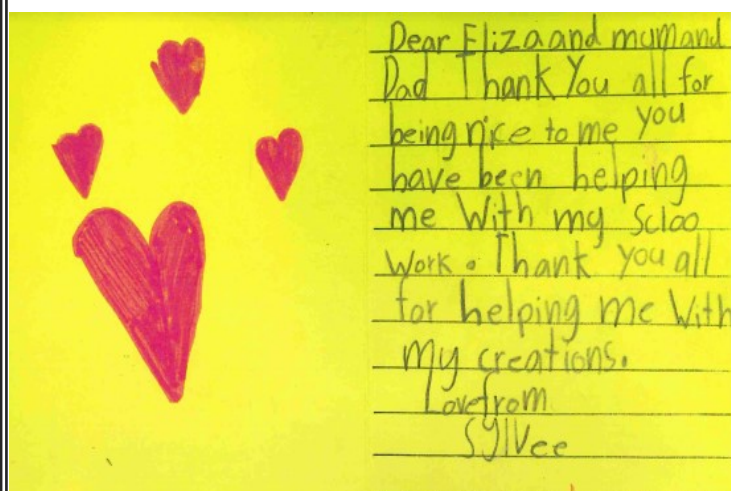 Dear Eliza and mum and
Dad Thank You all for
being nice to me you
have been helping
me With my Scloo
Work. Thank you all
for helping me With
my creations.
Love from
Sylvee